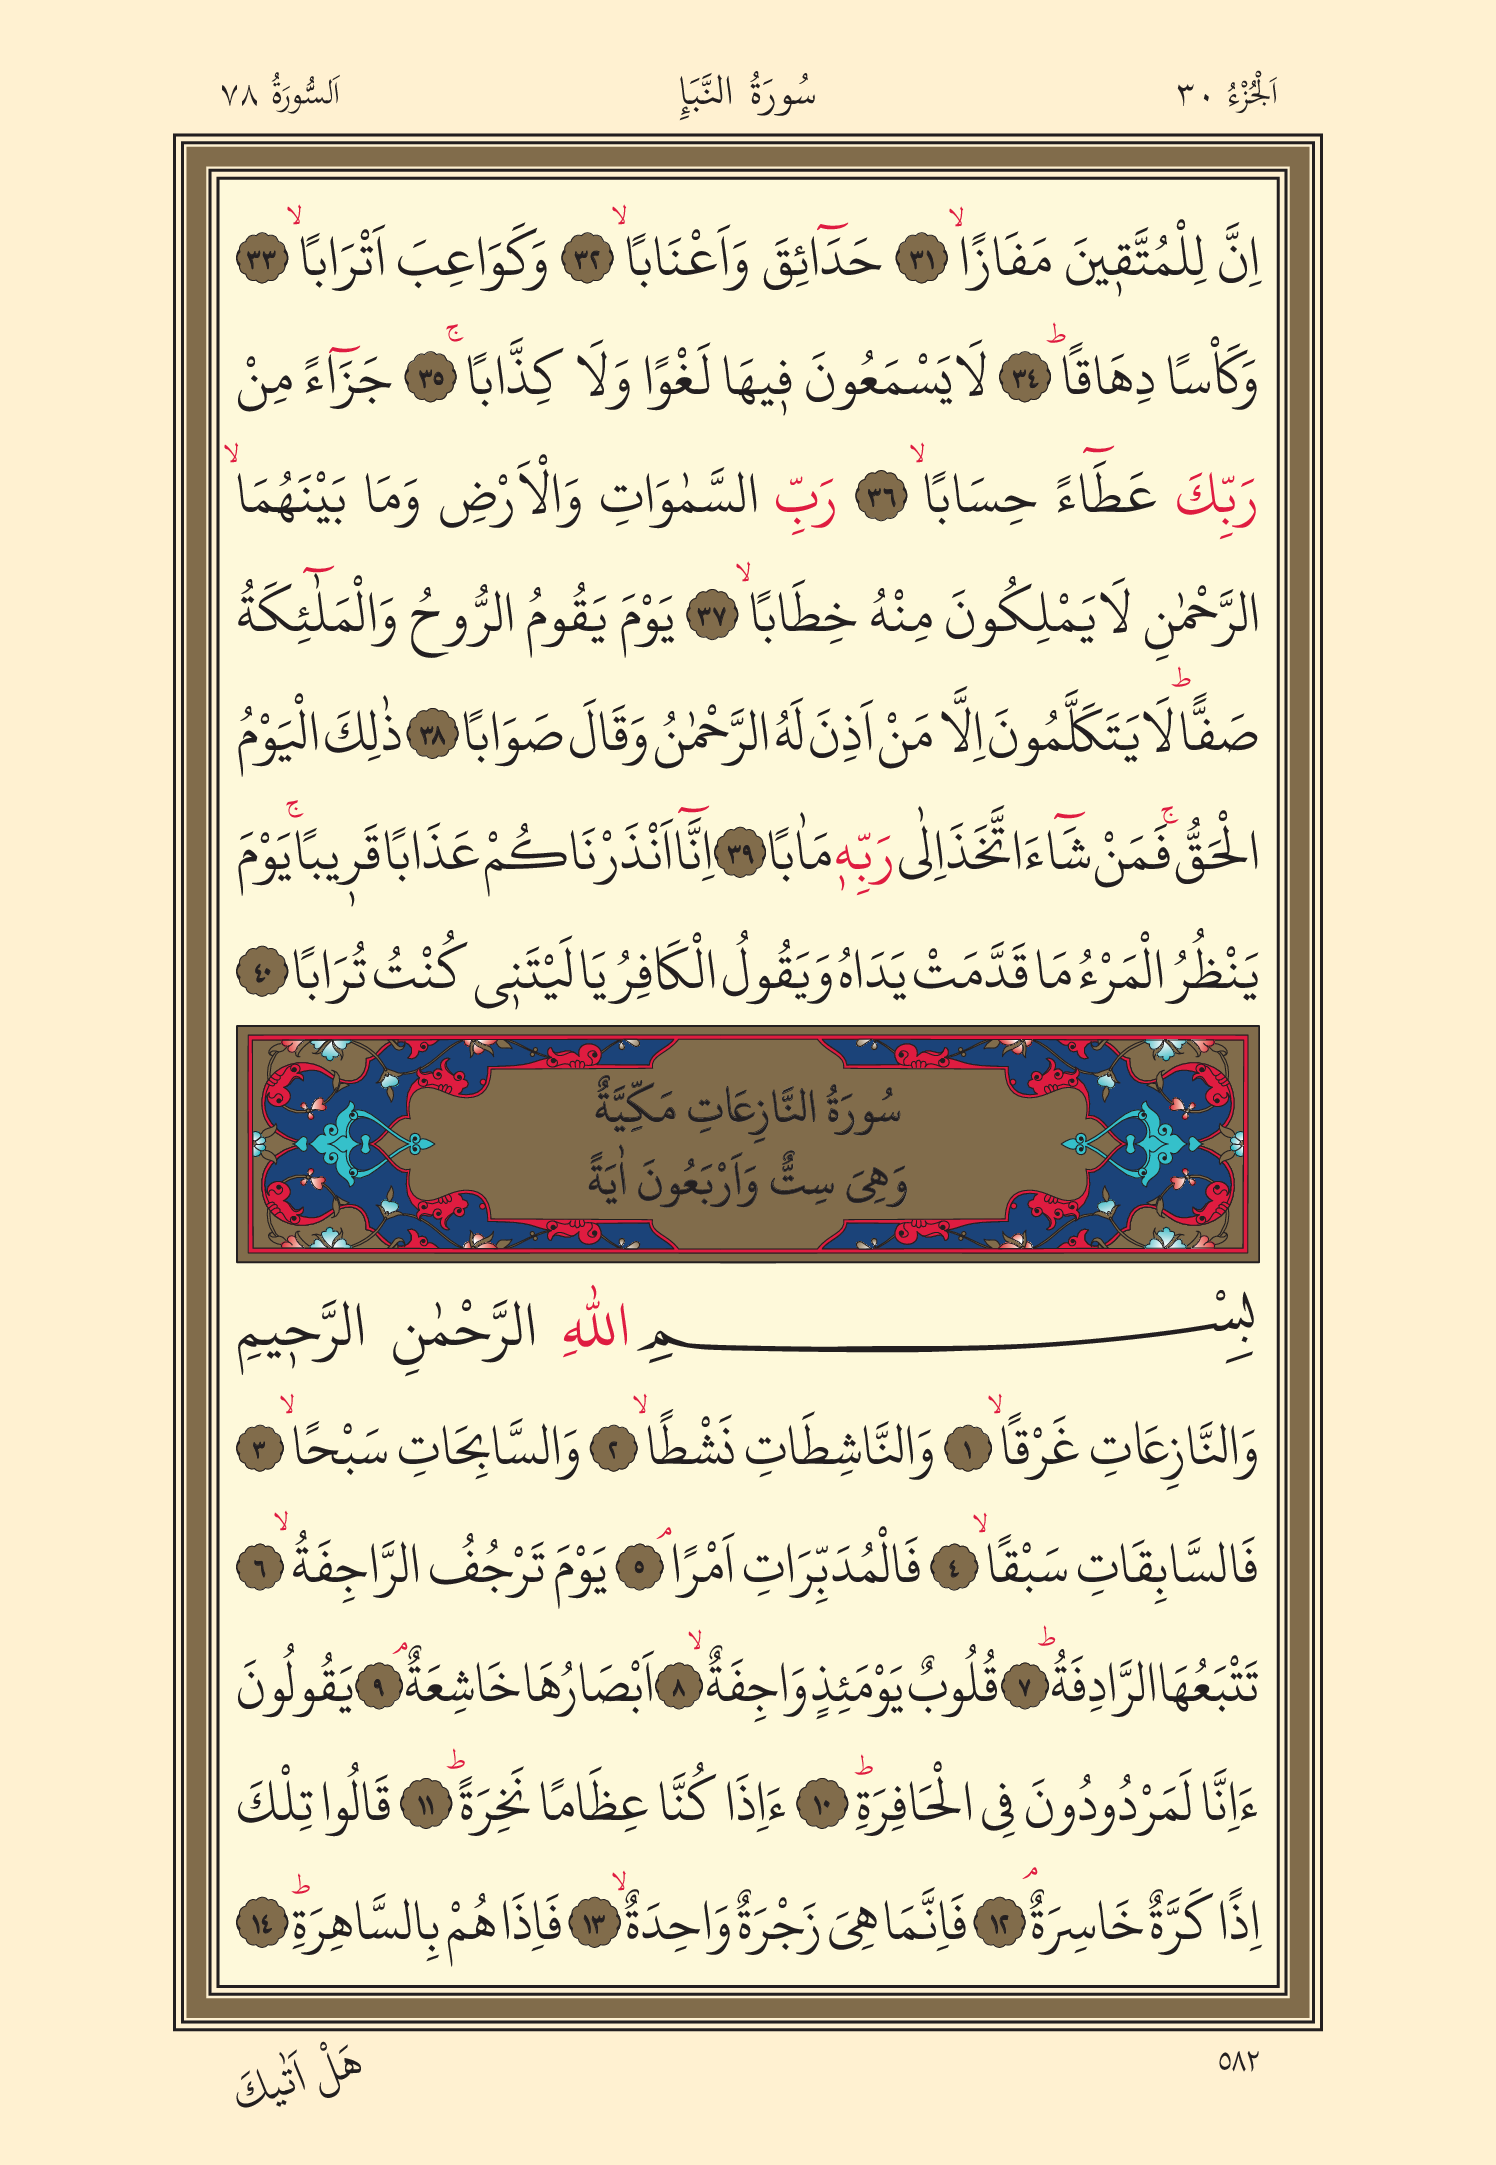 اَلْجُزْءُ ٣٠ سُورَةُ النَّبَإِ اَلسُّورَةُ ٧٨
اِنَّ لِلْمُتَّق۪ينَ مَفَازًاۙ ﴿٣١﴾ حَدَٓائِقَ وَاَعْنَابًاۙ ﴿٣٢﴾ وَكَوَاعِبَ اَتْرَابًاۙ ﴿٣٣﴾
وَكَأْسًا دِهَاقًاۜ ﴿٣٤﴾ لَا يَسْمَعُونَ ف۪يهَا لَغْوًا وَلَا كِذَّابًاۚ ﴿٣٥﴾ جَزَٓاءً مِنْ
رَبِّكَ عَطَٓاءً حِسَابًاۙ ﴿٣٦﴾ رَبِّ السَّمٰوَاتِ وَالْاَرْضِ وَمَا بَيْنَهُمَاۙ
الرَّحْمٰنِ لَا يَمْلِكُونَ مِنْهُ خِطَابًاۙ ﴿٣٧﴾ يَوْمَ يَقُومُ الرُّوحُ وَالْمَلٰٓئِكَةُ
صَفًّاۜ لَا يَتَكَلَّمُونَ اِلَّا مَنْ اَذِنَ لَهُ الرَّحْمٰنُ وَقَالَ صَوَابًا ﴿٣٨﴾ ذٰلِكَ الْيَوْمُ
الْحَقُّۚ فَمَنْ شَٓاءَ اتَّخَذَ اِلٰى رَبِّه۪ مَاٰبًا ﴿٣٩﴾ اِنَّٓا اَنْذَرْنَاكُمْ عَذَابًا قَر۪يبًاۚ يَوْمَ
يَنْظُرُ الْمَرْءُ مَا قَدَّمَتْ يَدَاهُ وَيَقُولُ الْكَافِرُ يَا لَيْتَن۪ى كُنْتُ تُرَابًا ﴿٤٠﴾
سُورَةُ النَّازِعَاتِ مَكِّيَّةٌ
وَهِىَ سِتٌّ وَاَرْبَعُونَ اٰيَةً
بِسْمِ اللّٰهِ الرَّحْمٰنِ الرَّح۪يمِ
وَالنَّازِعَاتِ غَرْقًاۙ ﴿١﴾ وَالنَّاشِطَاتِ نَشْطًاۙ ﴿٢﴾ وَالسَّابِحَاتِ سَبْحًاۙ ﴿٣﴾
فَالسَّابِقَاتِ سَبْقًاۙ ﴿٤﴾ فَالْمُدَبِّرَاتِ اَمْرًاۢ ﴿٥﴾ يَوْمَ تَرْجُفُ الرَّاجِفَةُۙ ﴿٦﴾
تَتْبَعُهَا الرَّادِفَةُۜ ﴿٧﴾ قُلُوبٌ يَوْمَئِذٍ وَاجِفَةٌۙ ﴿٨﴾ اَبْصَارُهَا خَاشِعَةٌۢ ﴿٩﴾ يَقُولُونَ
ءَاِنَّا لَمَرْدُودُونَ فِى الْحَافِرَةِۜ ﴿١٠﴾ ءَاِذَا كُنَّا عِظَامًا نَخِرَةًۜ ﴿١١﴾ قَالُوا تِلْكَ
اِذًا كَرَّةٌ خَاسِرَةٌۢ ﴿١٢﴾ فَاِنَّمَا هِىَ زَجْرَةٌ وَاحِدَةٌۙ ﴿١٣﴾ فَاِذَا هُمْ بِالسَّاهِرَةِۜ ﴿١٤﴾
٥٨٢ هَلْ اَتٰيكَ